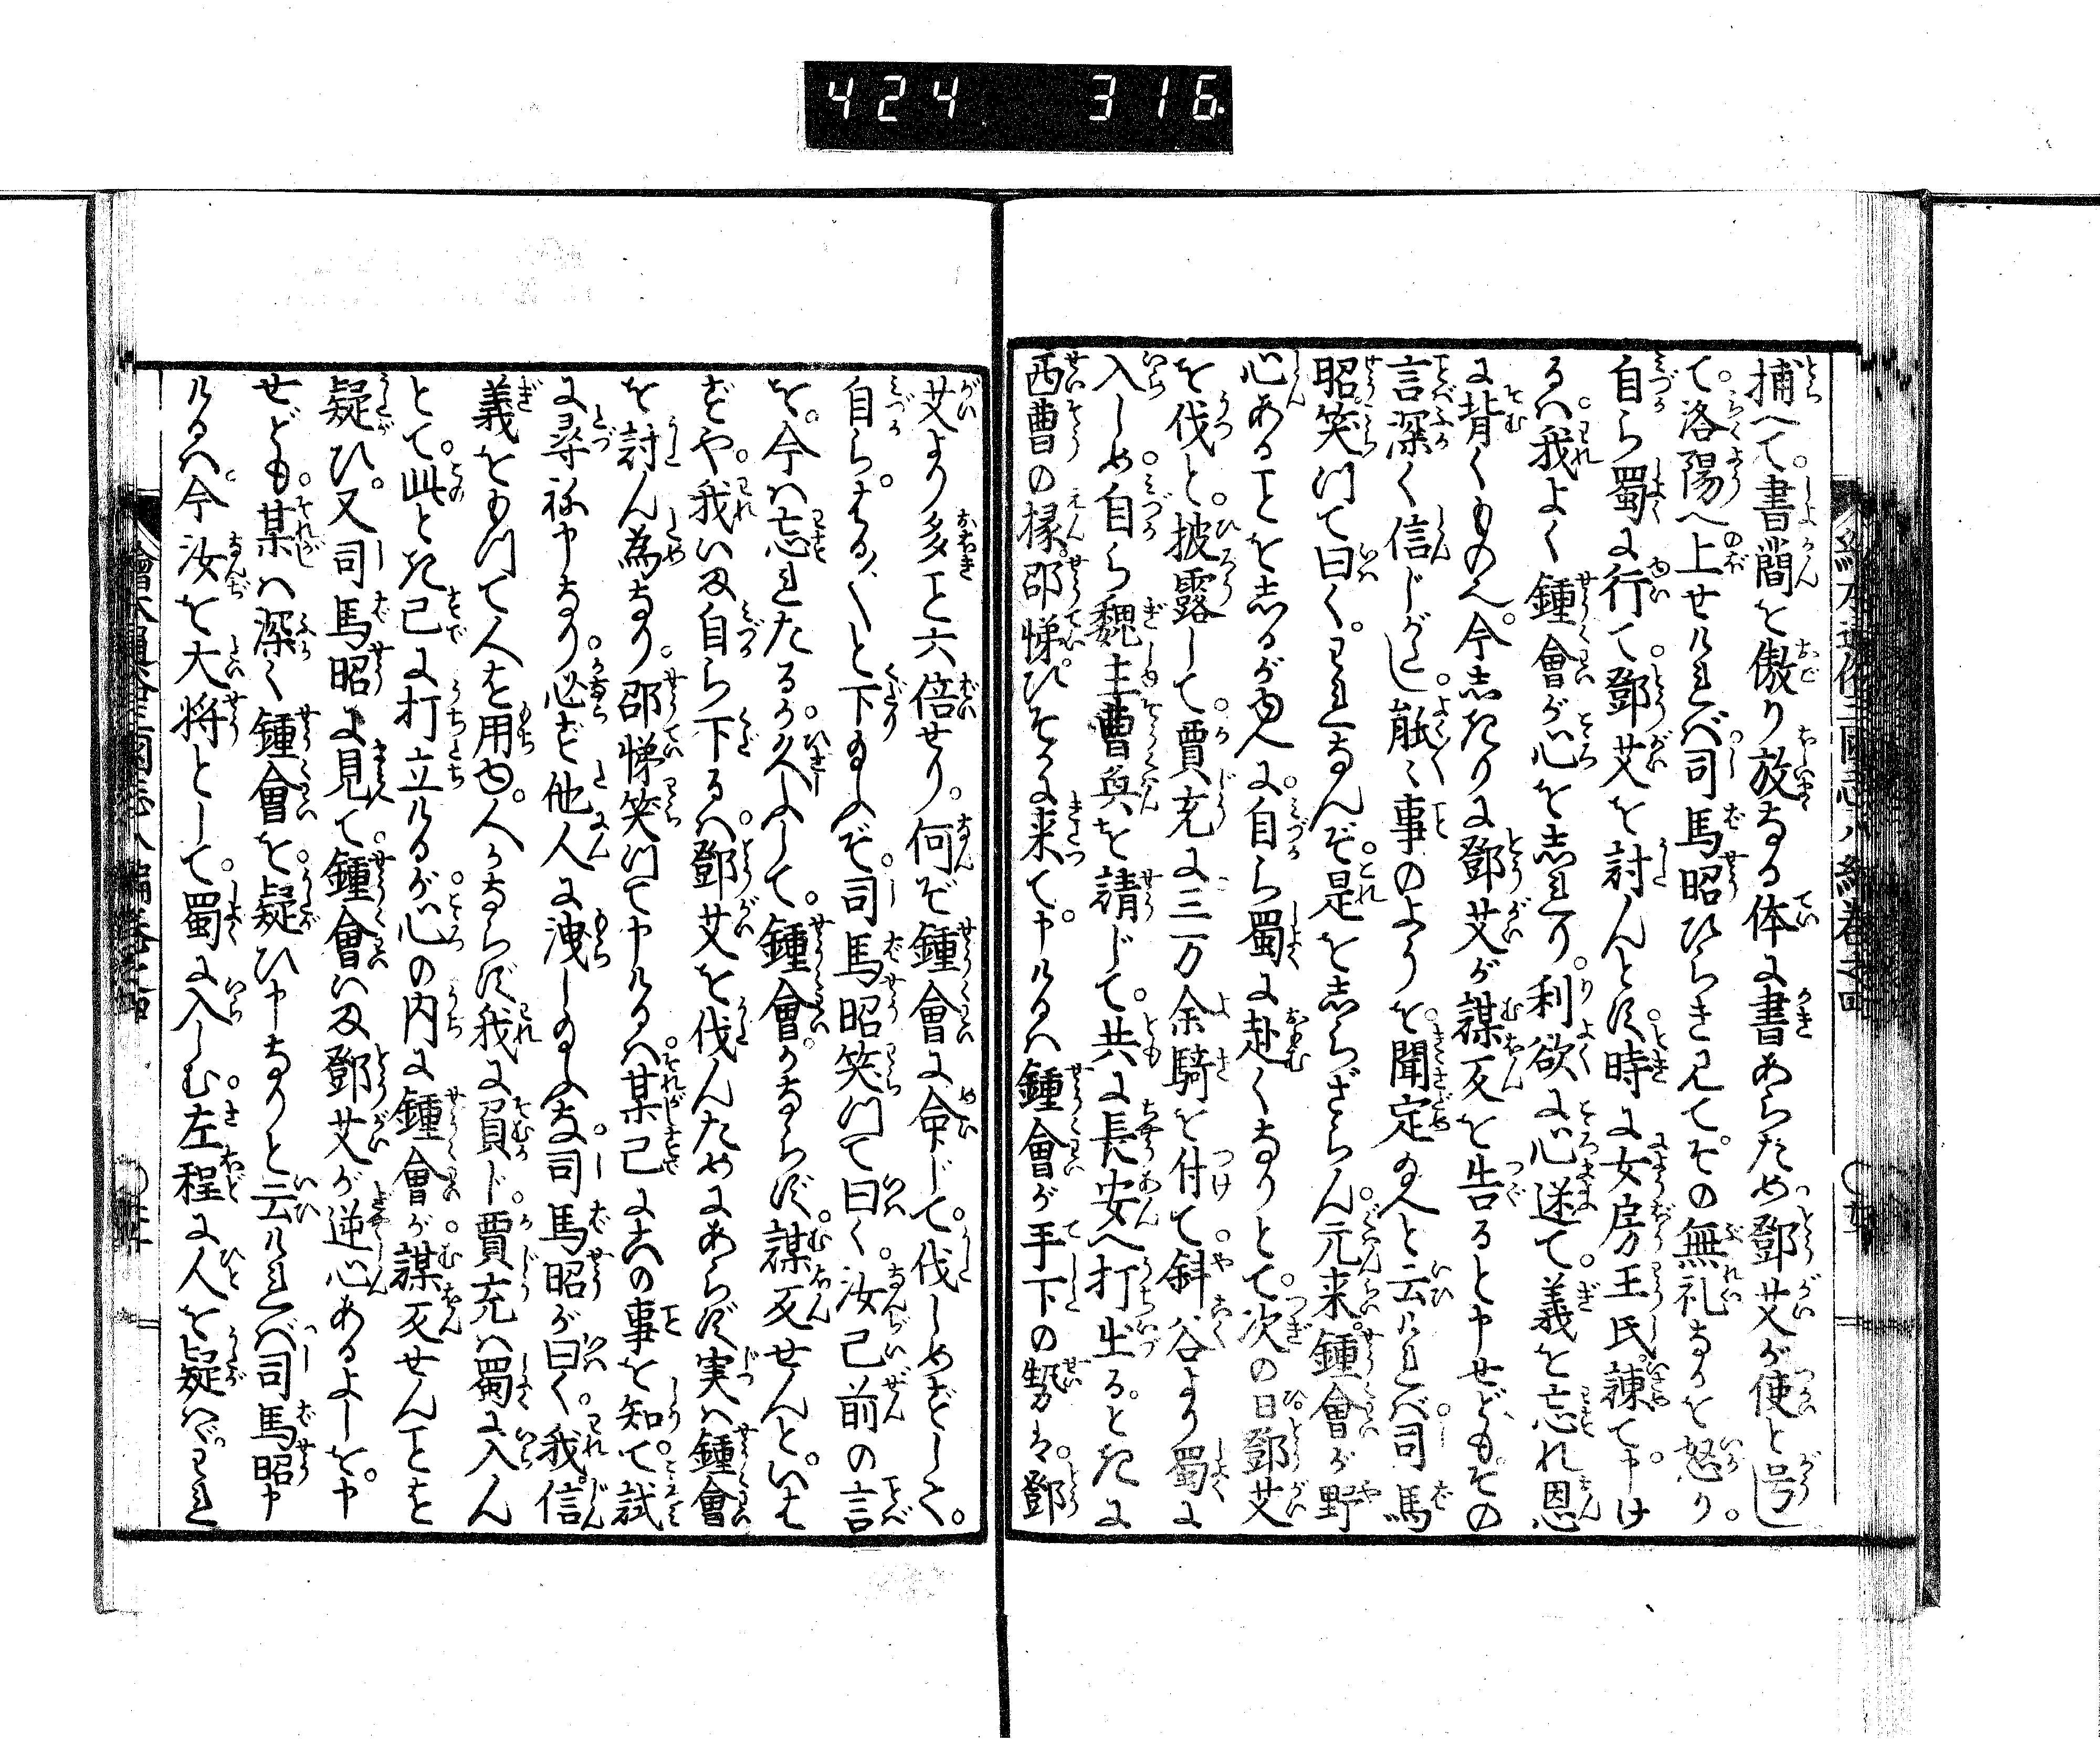 424 316
捕へて。書簡を傲り放なる体に書あらため鄧艾が使と号し
て。洛陽へ上せけれバ司馬昭ひらき見て。その無礼なるを怒り。
自ら蜀に行て鄧艾を討んとす時に女房王氏諫て申け
るハ。我よく鍾會が心を志れり。利欲に心迷て。義を忘れ恩
に背くもの也。今志きりに鄧艾が謀反を告ると申せども。その
言深く信じがたし。能々事のようを聞定め給へと云けれバ司馬
昭笑つて曰く。われなんぞ。是を志らざらん元来。鍾會が野
心あることを志るがゆへに。自ら蜀に赴くなりとて。次の日鄧艾
を伐と。披露して。賈充に三万余騎を付て。斜谷より蜀に
入しめ。自ら魏主曹奐を請じて。共に長安へ打出る。ときに
西曹の掾邵悌ひそかに来て。申けるハ鍾會が手下の勢ハ。鄧
艾より多こと六倍せり。何ぞ鍾會に命じて。伐しめずして。
自ら。はる〲と下り給ふぞ。司馬昭笑つて曰く。汝已前の言
を。今ハ忘れたるか。久ふして。鍾會。かならず。謀反せんと。いは
ずや。我いま自ら下るハ。鄧艾を伐んためにあらず実ハ鍾會
を討ん為なり。邵悌笑つて申けるハ。某已に此の事を知て。試
に尋ね申なり。必ず他人に洩し給ふな。司馬昭が曰く。我。信
義をもつて人を用ゆ。人かならず我に負ト。賈充ハ蜀に入ん
とて。此とき已に打立けるが。心の内に鍾會が。謀反せんことを
疑ひ。又司馬昭に見へて。鍾會いま鄧艾が逆心あるよしを。申
せども。某ハ深く鍾會を。疑ひ申なりと云けれバ。司馬昭申
けるハ。今汝を大将として。蜀に入しむ。左程に人を疑ハバ。われ